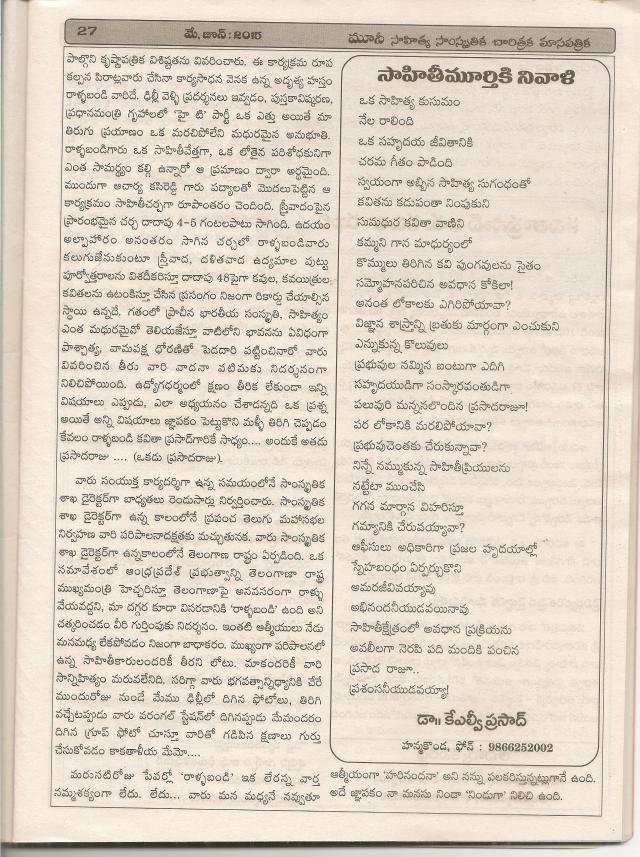 27
మే, జూన్ : 2015
మూసీ సాహిత్య సాంస్కృతిక చారిత్రక మాసపత్రిక
పాల్గొని కృష్ణాపత్రిక విశిష్టతను వివరించారు. ఈ కార్యక్రమ రూప
కల్పన పిరాట్లవారు చేసినా కార్యసాధన వెనక ఉన్న అదృశ్య హస్తం
రాళ్ళబండి వారిదే. ఢిల్లీ వెళ్ళి ప్రదర్శనలు ఇవ్వడం, పుస్తకావిష్కరణ,
ప్రధానమంత్రి గృహాలలో ‘హై టి’ పార్టీ ఒక ఎత్తు అయితే మా
తిరుగు ప్రయాణం ఒక మరచిపోలేని మధురమైన అనుభూతి.
రాళ్ళబండిగారు ఒక సాహితీవేత్తగా, ఒక లోతైన పరిశోధకునిగా
ఎంత సామర్థ్యం కల్గి ఉన్నారో ఆ ప్రమాణం ద్వారా అర్థమైంది.
ముందుగా ఆచార్య కసిరెడ్డి గారు పద్యాలతో మొదలుపెట్టిన ఆ
కార్యక్రమం సాహితీచర్చగా రూపాంతరం చెందింది. స్త్రీవాదంపైన
ప్రారంభమైన చర్చ దాదాపు 4-5 గంటలపాటు సాగింది. ఉదయం
అల్పాహారం అనంతరం సాగిన చర్చలో రాళ్ళబండివారు
కలుగుజేసుకుంటూ స్త్రీవాద, దళితవాద ఉద్యమాల పుట్టు
పూర్వోత్తరాలను విశదీకరిస్తూ దాదాపు 48పైగా కవుల, కవయిత్రుల
కవితలను ఉటంకిస్తూ చేసిన ప్రసంగం నిజంగా రికార్డు చేయాల్సిన
స్థాయి ఉన్నదే. గతంలో ప్రాచీన భారతీయ సంస్కృతి, సాహిత్యం
ఎంత మధురమైవో తెలియజేస్తూ వాటిలోని భావనను ఏవిధంగా
పాశ్చాత్య, వామపక్ష ధోరణితో పెడదారి పట్టించినారో వారు
వివరించిన తీరు వారి వాదనా పటిమకు నిదర్శనంగా
నిలిచిపోయింది. ఉద్యోగధర్మంలో క్షణం తీరిక లేకుండా ఇన్ని
విషయాలు ఎప్పుడు, ఎలా అధ్యయనం చేశాడన్నది ఒక ప్రశ్న
అయితే అన్ని విషయాలు జ్ఞాపకం పెట్టుకొని మళ్ళీ తిరిగి చెప్పడం
కేవలం రాళ్ళబండి కవితా ప్రసాద్‌గారికే సాధ్యం.... అందుకే అతడు
ప్రసాదరాజు .... (ఒకడు ప్రసాదరాజు).
వారు సంయుక్త కార్యదర్శిగా ఉన్న సమయంలోనే సాంస్కృతిక
శాఖ డైరెక్టర్‌గా బాధ్యతలు రెండుసార్లు నిర్వర్తించారు. సాంస్కృతిక
శాఖ డైరెక్టర్‌గా ఉన్న కాలంలోనే ప్రపంచ తెలుగు మహాసభల
నిర్వహణ వారి పరిపాలనాదక్షతకు మచ్చుతునక. వారు సాంస్కృతిక
శాఖ డైరెక్టర్‌గా ఉన్నకాలంలోనే తెలంగాణ రాష్ట్రం ఏర్పడింది. ఒక
సమావేశంలో ఆంధ్రప్రదేశ్ ప్రభుత్వాన్ని తెలంగాణా రాష్ట్ర
ముఖ్యమంత్రి హెచ్చరిస్తూ తెలంగాణాపై అనవసరంగా రాళ్ళు
వేయవద్దని, మా దగ్గర కూడా విసరడానికి ‘రాళ్ళబండి’ ఉంది అని
చత్కరించడం వీరి గుర్తింపుకు నిదర్శనం. ఇంతటి ఆత్మీయులు నేడు
మనమధ్య లేకపోవడం నిజంగా బాధాకరం. ముఖ్యంగా పరిపాలనలో
ఉన్న సాహితీకారులందరికీ తీరని లోటు. మాకందరికీ వారి
సాన్నిహిత్యం మరువలేనిది. సరిగ్గా వారు భగవత్సాన్నిధ్యానికి చేరే
ముందురోజు నుండే మేము ఢిల్లీలో దిగిన ఫోటోలు, తిరిగి
వచ్చేటప్పుడు వారు వరంగల్ స్టేషన్‌లో దిగినప్పుడు మేమందరం
దిగిన గ్రూప్ ఫోటో చూస్తూ వారితో గడిపిన క్షణాలు గుర్తు
చేసుకోవడం కాకతాళీయ మేమో....
మరుసటిరోజు పేపర్లో ‘రాళ్ళబండి’ ఇక లేరన్న వార్త
నమ్మశక్యంగా లేదు. లేదు... వారు మన మధ్యనే నవ్వుతూ
సాహితీమూర్తికి నివాళి
ఒక సాహిత్య కుసుమం
నేల రాలింది
ఒక సహృదయ జీవితానికి
చరమ గీతం పాడింది
స్వయంగా అబ్బిన సాహిత్య సుగంధంతో
కవితను కడుపంతా నింపుకుని
సుమధుర కవితా వాణిని
కమ్మని గాన మాధుర్యంలో
కొమ్ములు తిరిగిన కవి పుంగవులను సైతం
సమ్మోహనపరిచిన అవధాన కోకిలా!
అనంత లోకాలకు ఎగిరిపోయావా?
విజ్ఞాన శాస్త్రాన్ని బ్రతుకు మార్గంగా ఎంచుకుని
ఎన్నుకున్న కొలువులు
ప్రభువుల నమ్మిన బంటుగా ఎదిగి
సహృదయుడిగా సంస్కారవంతుడిగా
పలువురి మన్ననలొందిన ప్రసాదరాజూ!
పర లోకానికి మరలిపోయావా?
ప్రభువుచెంతకు చేరుకున్నావా?
నిన్నే నమ్ముకున్న సాహితీప్రియులను
నట్టేటా ముంచేసి
గగన మార్గాన విహరిస్తూ
గమ్యానికి చేరువయ్యావా?
ఆఫీసులు అధికారిగా ప్రజల హృదయాల్లో
స్నేహబంధం ఏర్పర్చుకొని
అమరజీవివయ్యావు
అభినందనీయుడవయినావు
సాహితీక్షేత్రంలో అవధాన ప్రక్రియను
అవలీలగా నెరపి పది మందికి పంచిన
ప్రసాద రాజూ..
ప్రశంసనీయుడవయ్యా!
డా॥ కేఎల్వీ ప్రసాద్
హన్మకొండ, ఫోన్ : 9866252002
ఆత్మీయంగా ‘హరినందనా’ అని నన్ను పలకరిస్తున్నట్లుగానే ఉంది.
అదే జ్ఞాపకం నా మనసు నిండా ‘నిండుగా’ నిలిచి ఉంది.